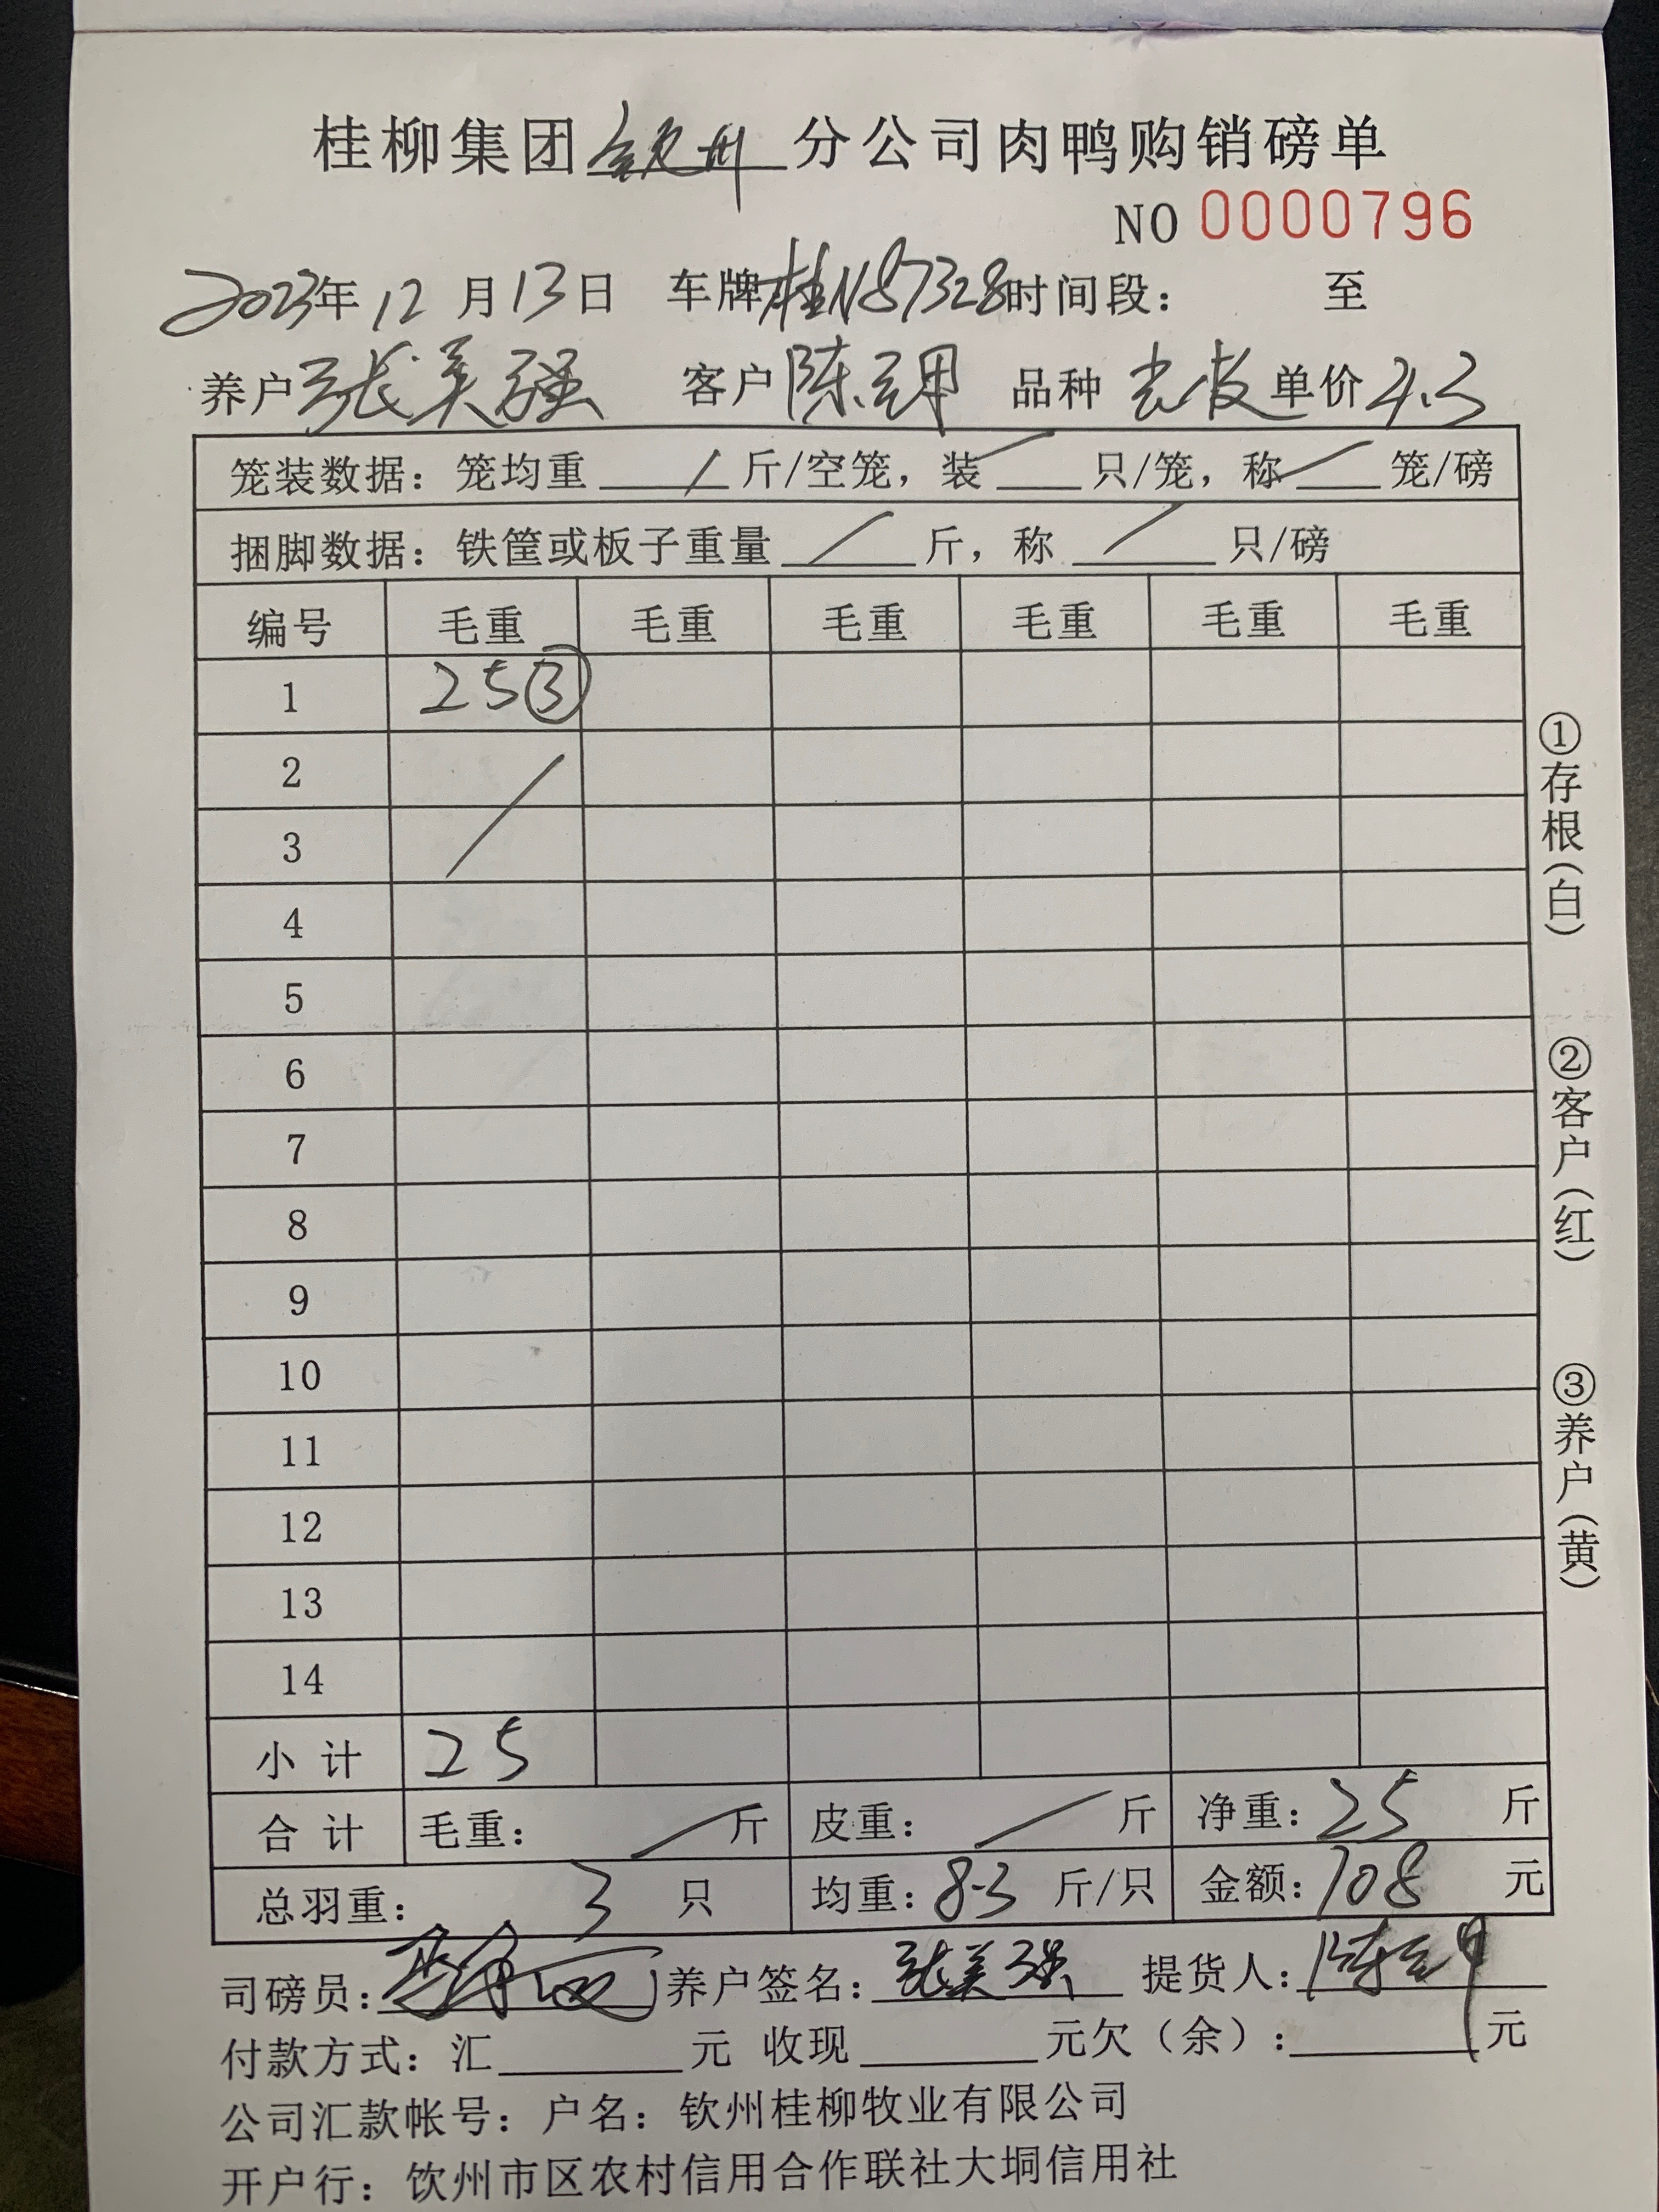 桂柳集团钦州分公司肉鸭购销磅单
NO 0000796
2023年12月13日 车牌桂N87328时间段： 至
养户张美强 客户陈 品种光皮单价4.3
笼装数据：笼均重 / 斤/空笼，装 / 只/笼，称 / 笼/磅
捆脚数据：铁筐或板子重量 / 斤，称 / 只/磅
编号 毛重 毛重 毛重 毛重 毛重 毛重
1 25③
2 /
3
4
5
6
7
8
9
10
11
12
13
14
小计 25
合计 毛重： / 斤 皮重： / 斤 净重：25 斤
总羽重： 3 只 均重：8.3 斤/只 金额：108 元
司磅员： 养户签名：张美强 提货人：陈
付款方式：汇 元 收现 元欠（余）： 元
公司汇款帐号：户名：钦州桂柳牧业有限公司
开户行：钦州市区农村信用合作联社大垌信用社
①存根（白）
②客户（红）
③养户（黄）